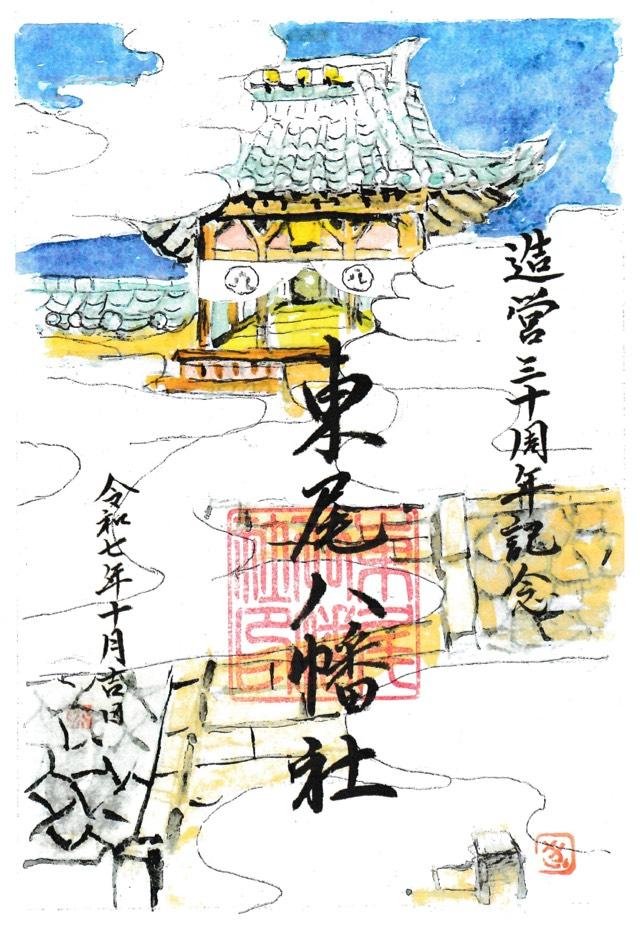 造営三十周年記念
東尾八幡社
令和七年十月吉日